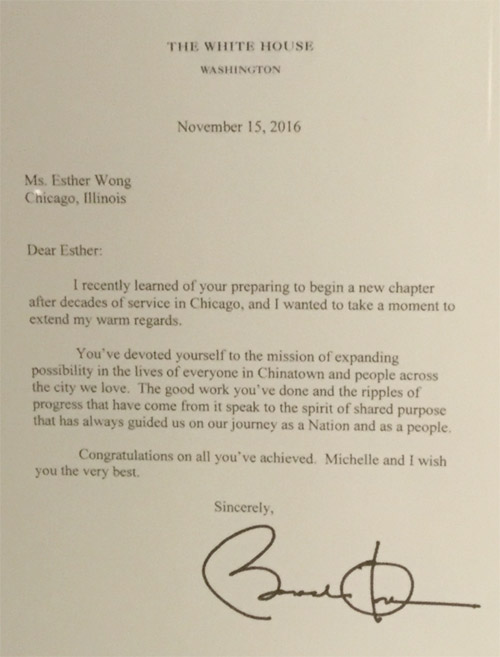 THE WHITE HOUSE
WASHINGTON
November 15, 2016
Ms. Esther Wong
Chicago, Illinois
Dear Esther:
I recently learned of your preparing to begin a new chapter
after decades of service in Chicago, and I wanted to take a moment to
extend my warm regards.
You've devoted yourself to the mission of expanding
possibility in the lives of everyone in Chinatown and people across
the city we love.  The good work you've done and the ripples of
progress that have come from it speak to the spirit of shared purpose
that has always guided us on our journey as a Nation and as a people.
Congratulations on all you've achieved.  Michelle and I wish
you the very best.
Sincerely,